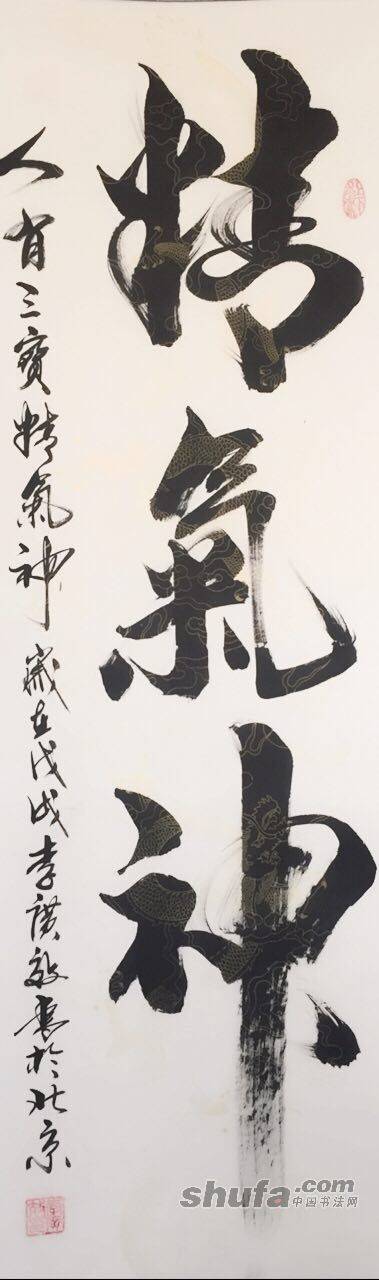 精氣神
人有三寳精氣神 歲在戊戌李
書於北京
shufa.com
中国书法网